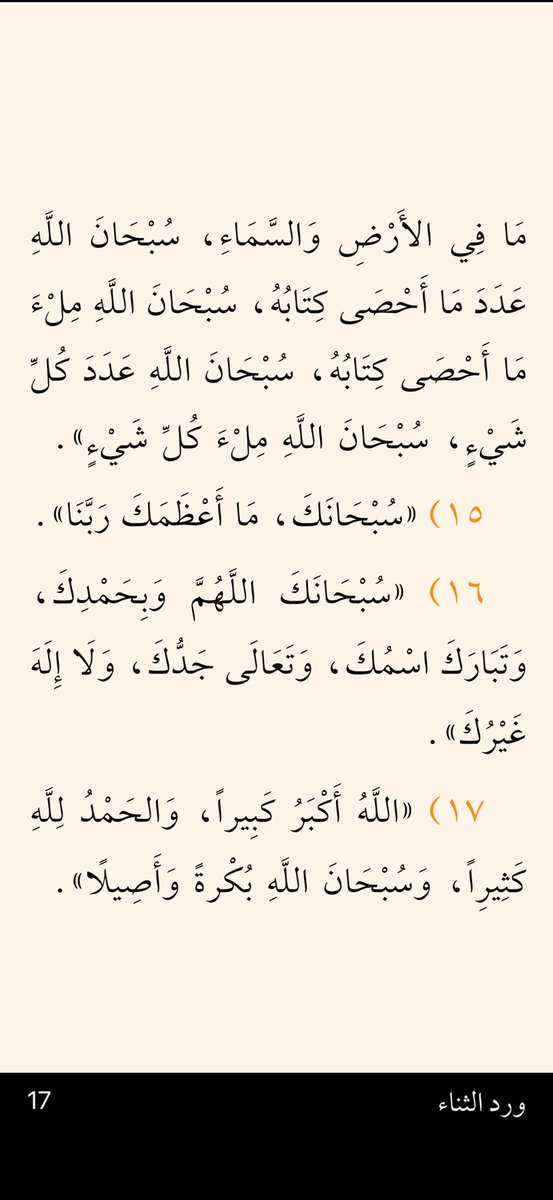 مَا فِي الأَرْضِ وَالسَّمَاءِ، سُبْحَانَ اللَّهِ
عَدَدَ مَا أَحْصَى كِتَابُهُ، سُبْحَانَ اللَّهِ مِلْءَ
مَا أَحْصَى كِتَابُهُ، سُبْحَانَ اللَّهِ عَدَدَ كُلِّ
شَيْءٍ، سُبْحَانَ اللَّهِ مِلْءَ كُلِّ شَيْءٍ».
١٥) «سُبْحَانَكَ، مَا أَعْظَمَكَ رَبَّنَا».
١٦) «سُبْحَانَكَ اللَّهُمَّ وَبِحَمْدِكَ،
وَتَبَارَكَ اسْمُكَ، وَتَعَالَى جَدُّكَ، وَلَا إِلَهَ
غَيْرُكَ».
١٧) «اللَّهُ أَكْبَرُ كَبِيراً، وَالحَمْدُ لِلَّهِ
كَثِيرِاً، وَسُبْحَانَ اللَّهِ بُكْرةً وَأَصِيلًا».
ورد الثناء 17